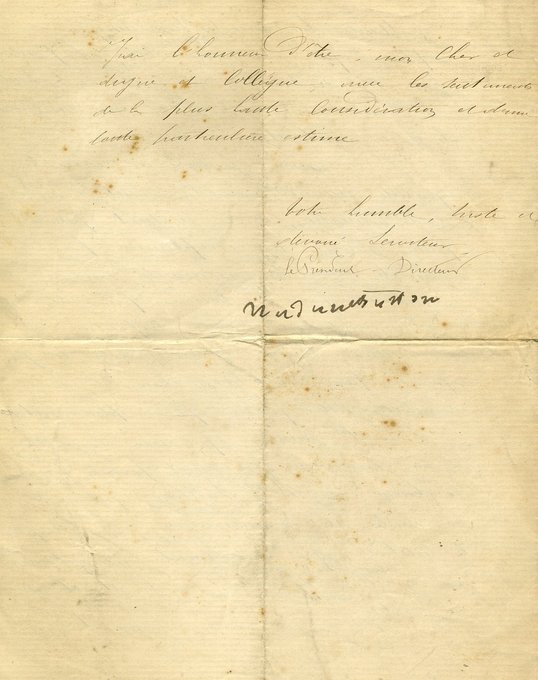 J'ai l'honneur d'être, mon cher et
digne et Collègue, avec les sentiments
de la plus haute Considération et d'une
toute particulière estime
Votre humble, triste et
dévoué Serviteur
Le Président - Directeur